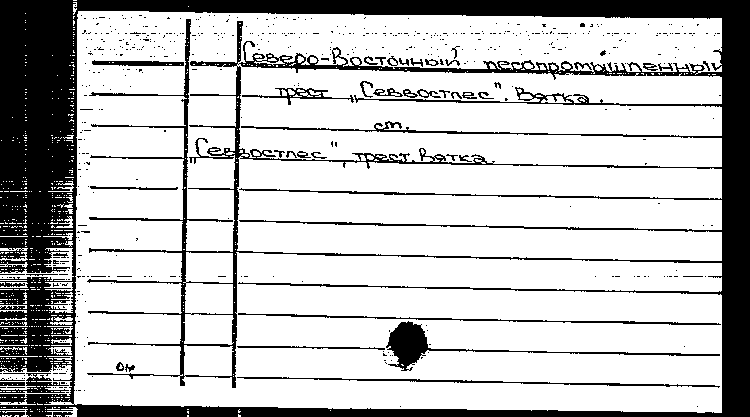 Северо-Восточный лесопромышленный
трест „Севвостлес". Вятка.
см.
„Севвостлес", трест. Вятка.